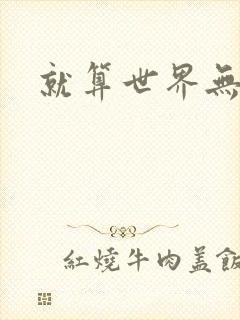 就算世界無
紅燒牛肉蓋飯